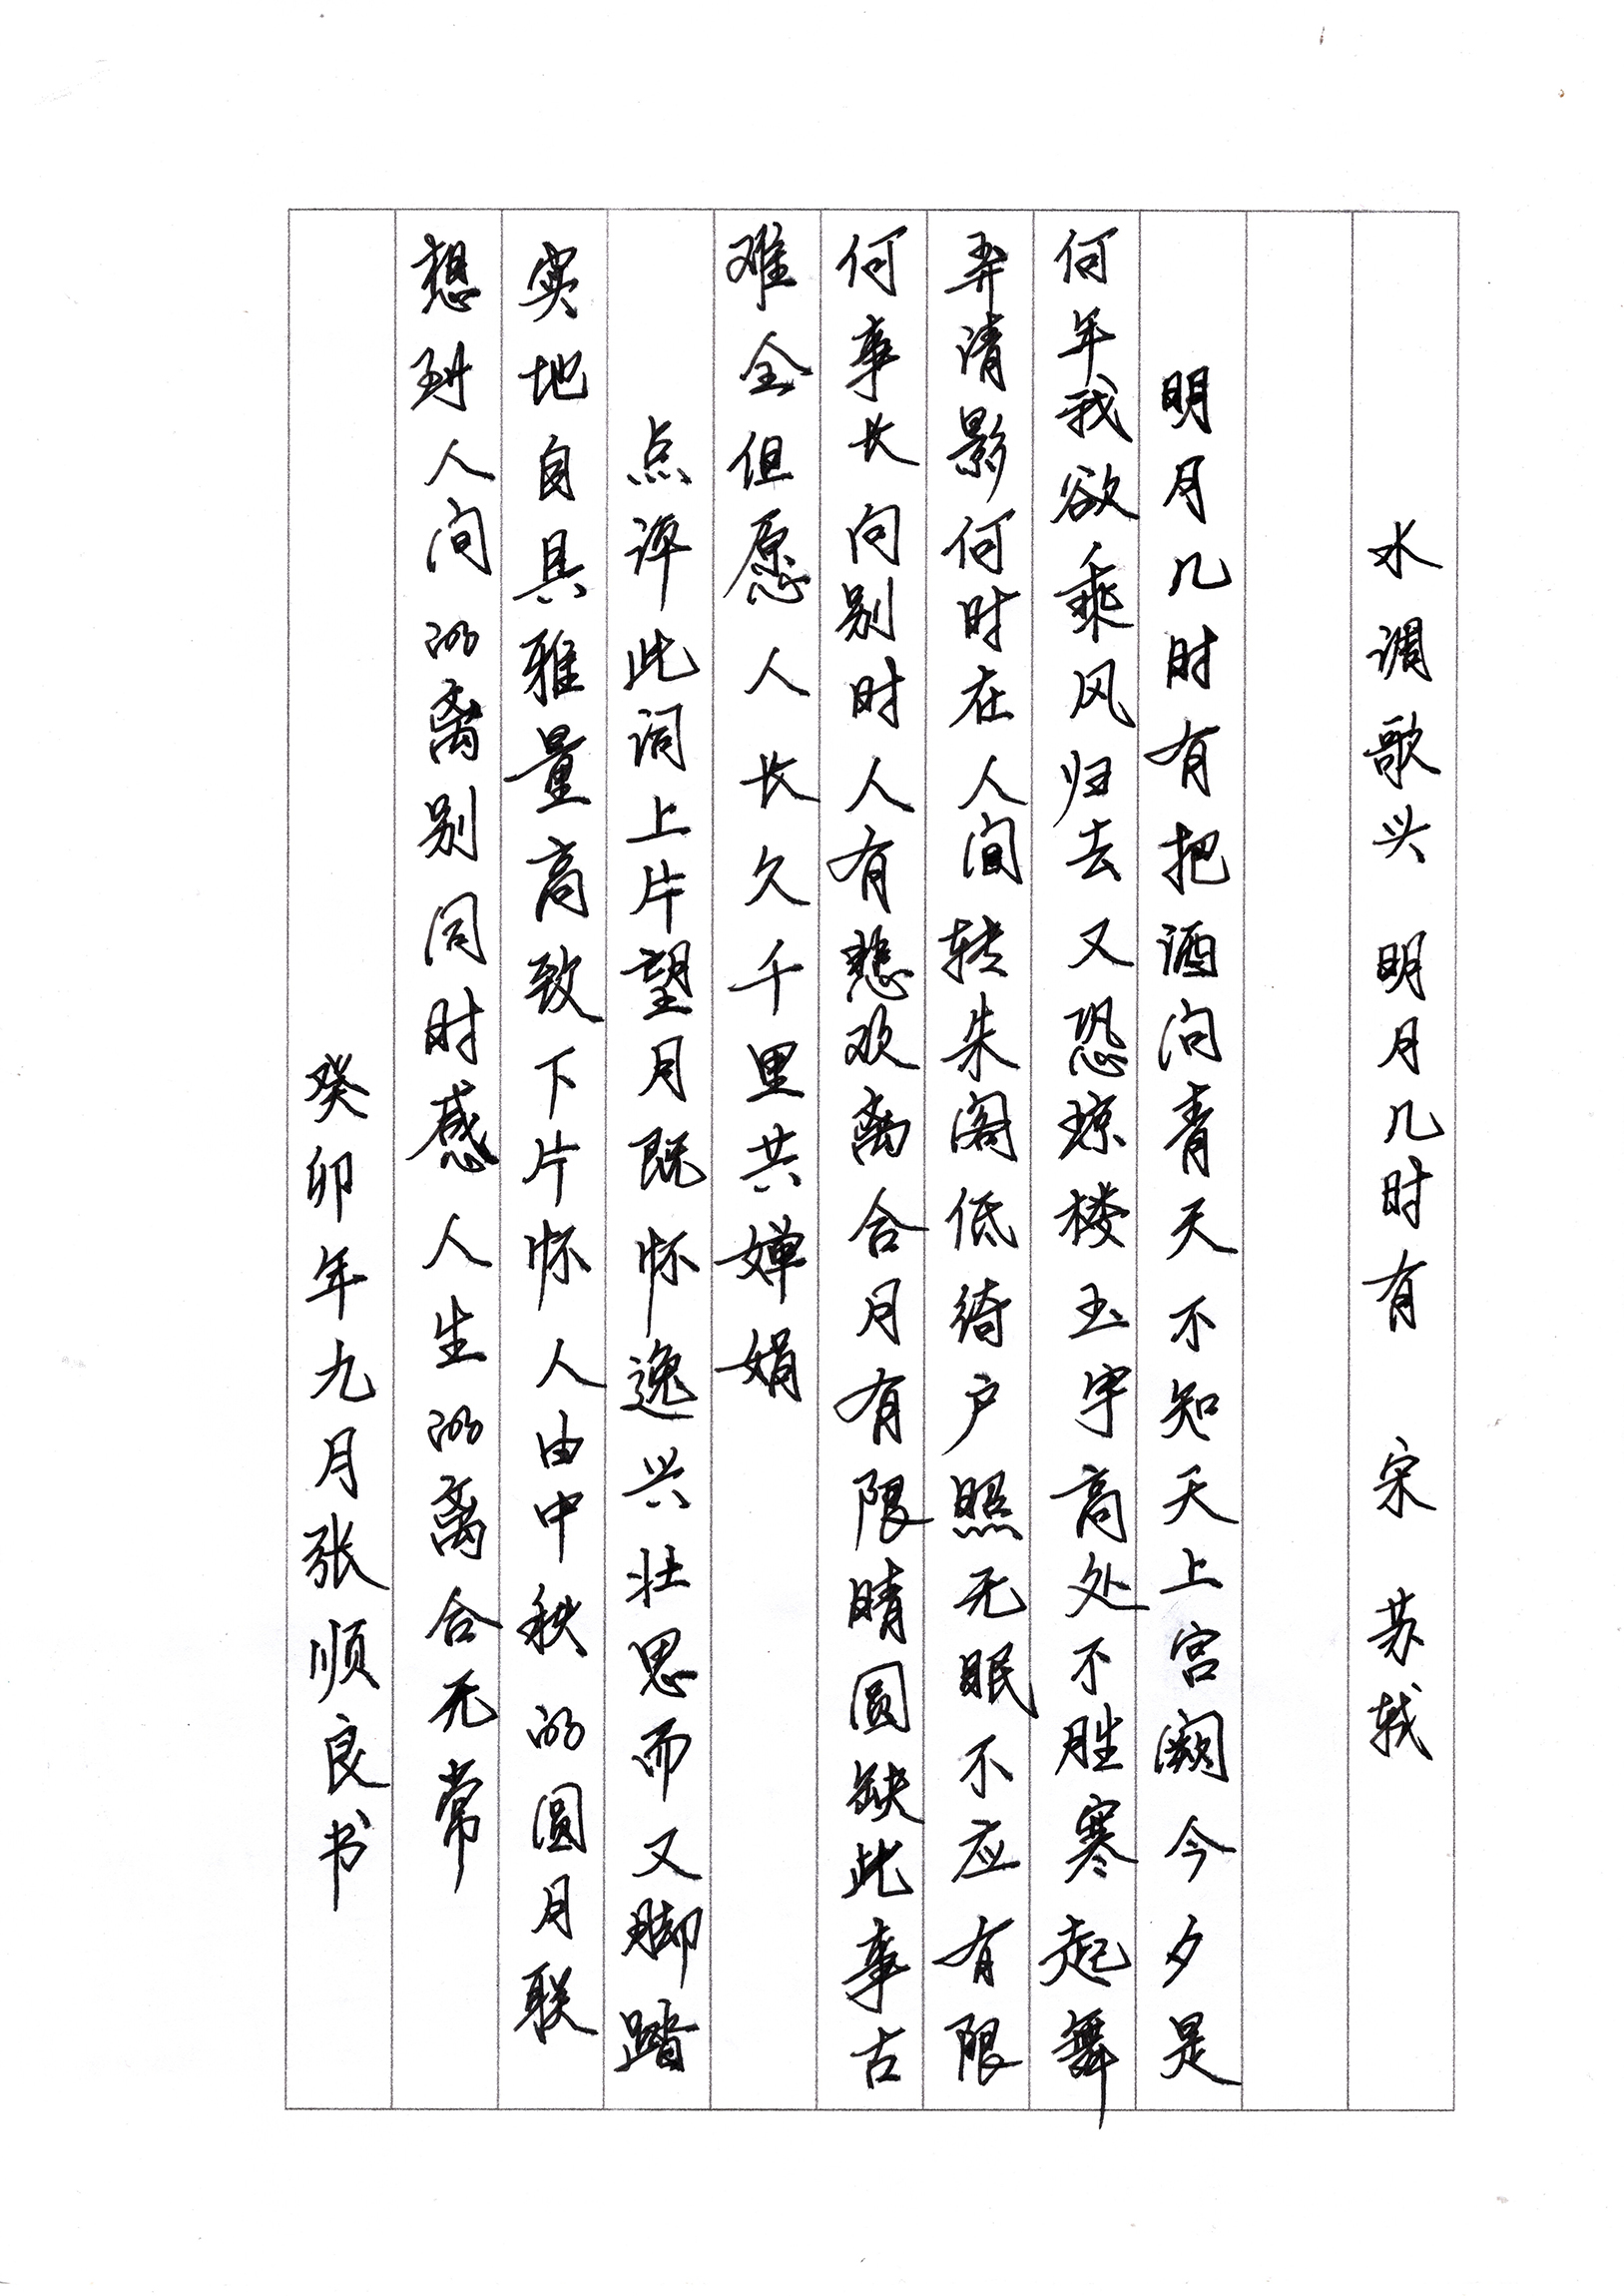 水调歌头 明月几时有 宋 苏轼
明月几时有把酒问青天不知天上宫阙今夕是
何年我欲乘风归去又恐琼楼玉宇高处不胜寒起舞
弄清影何时在人间转朱阁低绮户照无眠不应有限
何事长向别时人有悲欢离合月有限晴圆缺此事古
难全但愿人长久千里共婵娟
点评此词上片望月既怀逸兴壮思而又脚踏
实地自具雅量高致下片怀人由中秋的圆月联
想到人间的离别同时感人生的离合无常
癸卯年九月张顺良书